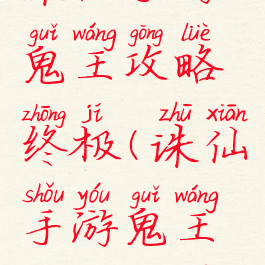 guǐ wáng gōng lüè
鬼王攻略
zhōng jí zhū xiān
终极(诛仙
shǒu yóu guǐ wáng
手游鬼王